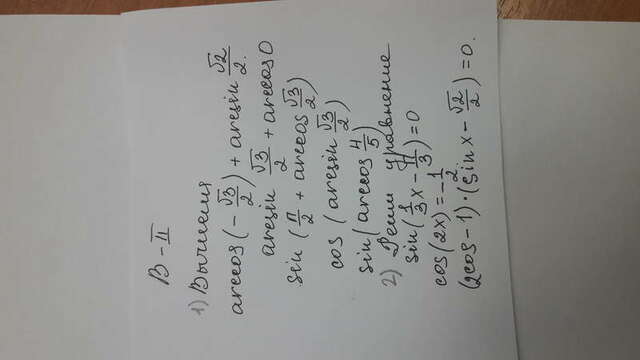 В-II
1) Вычисли
arccos(-√3/2) + arcsin √2/2.
arcsin √3/2 + arccos 0
sin(π/2 + arccos √3/2)
cos(arcsin √3/2)
sin(arccos 4/5)
2) Реши уравнение
sin(1/3x - π/3) = 0
cos(2x) = -1/2
(2cos - 1)·(sin x - √2/2) = 0.